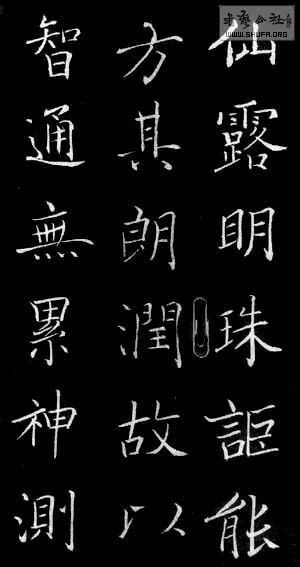 仙露明珠詎能
方其朗潤故以
智通無累神測
書藝公社
WWW.SHUFA.ORG